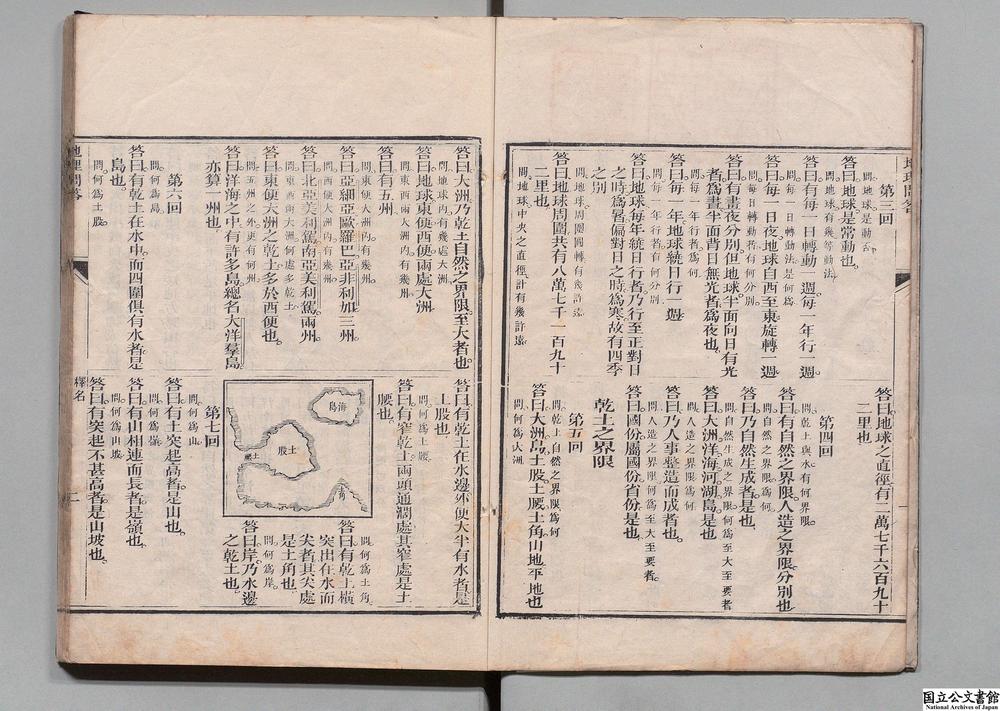 地理問答
第三回
問地球是動否
答曰地球是常動也
問地球有幾等動法
答曰有每一日轉動一週每一年行一週
問每一日轉動法是何爲
答曰每一日夜地球自西至東旋轉一週
問每日轉動者有何分別
答曰有晝夜分別但地球半面向日有光
者爲晝半面背日無光者爲夜也
問每一年行者爲何
答曰每一年地球繞日行一週
問每一年行者有何分別
答曰地球每年繞日行者乃行至正對日
之時爲暑偏對日之時爲寒故有四季
之別
問地球周圍圓轉有幾許遠
答曰地球周圍共有八萬七千一百九十
二里也
問地球中央之直徑計有幾許遠
答曰地球之直徑有二萬七千六百九十
二里也
第四回
問乾土與水有何界限
答曰有自然之界限人造之界限分別也
問自然之界限爲何
答曰乃自然生成者是也
問自然生成之界限何爲至大至要者
答曰大洲洋海河湖島是也
問人造之界限爲何
答曰乃人事整造而成者也
問人造之界限何爲至大至要者
答曰國份屬國份省份是也
乾土之界限
第五回
問乾土自然之界限爲何
答曰大洲島土股土腰土角山地平地也
問何爲大洲
一
答曰大洲乃乾土自然之界限至大者也
問地球內有幾處大洲
答曰地球東便西便兩處大洲
問東西兩大洲內有幾州
答曰有五州
問東便大洲內有幾州
答曰亞細亞歐羅巴亞非利加三州
問西便大洲內有幾州
答曰北亞美利駕南亞美利駕兩州
問東西兩大洲何處多乾土
答曰東便大洲之乾土多於西便也
問五州之外更有何州
答曰洋海之中有許多島總名大洋羣島
亦算一州也
第六回
問何爲島
答曰有乾土在水中而四圍俱有水者是
島也
問何爲土股
答曰有乾土在水邊外便大半有水者是
土股也
問何爲土腰
答曰有窄乾土兩頭通濶處其窄處是土
腰也
海島
土股
土腰
土角
問何爲土角
答曰有乾土橫
突出在水而
尖者其尖處
是土角也
問何爲岸
答曰岸乃水邊
之乾土也
第七回
問何爲山
答曰有土突起高者是山也
問何爲嶺
答曰有山相連而長者是嶺也
問何爲山坡
答曰有突起不甚高者是山坡也
地理問答
釋名
二
国立公文書館
National Archives of Japan